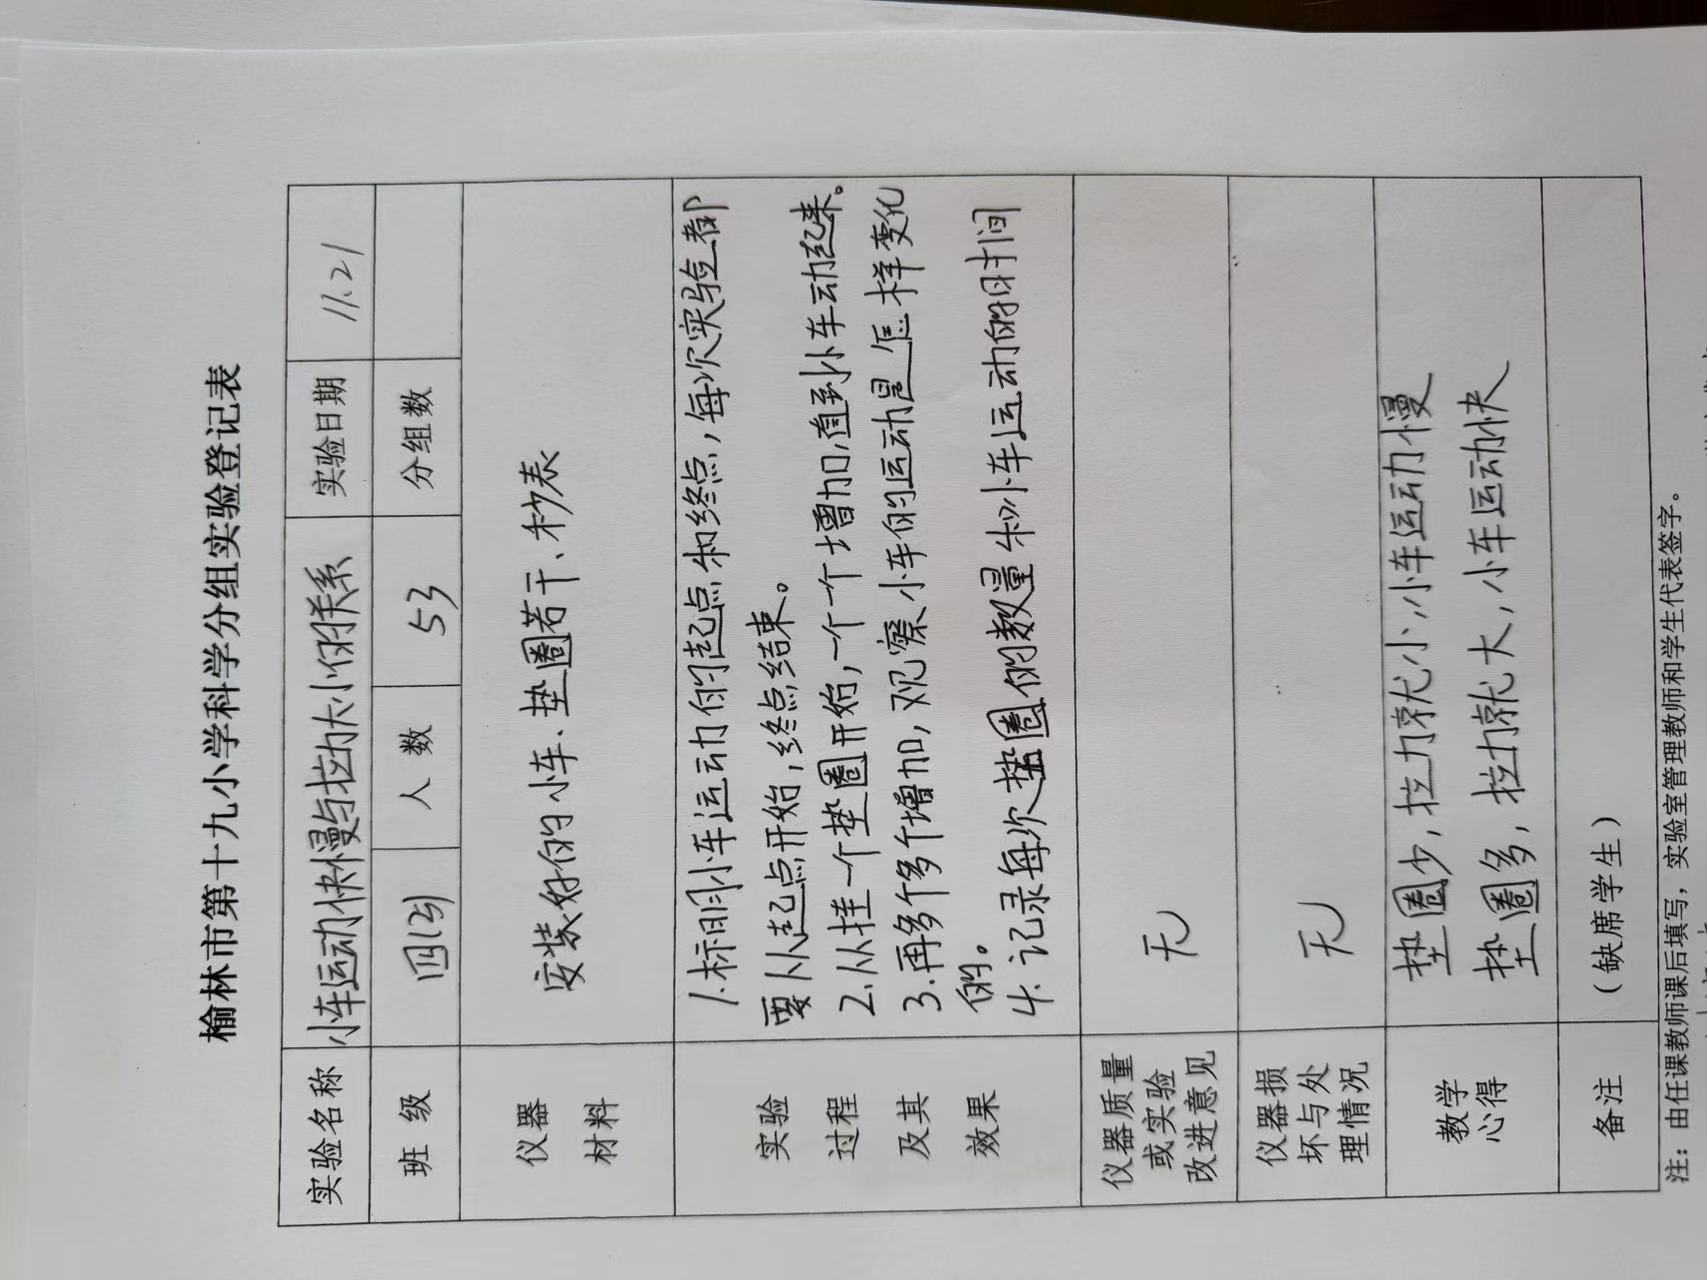 榆林市第十九小学科学分组实验登记表
实验名称 小车运动快慢与拉力大小的关系 实验日期 11.21
班 级 四(4) 人 数 53 分组数
仪器
材料
安装好的小车、垫圈若干、秒表
实验
过程
及其
效果
1.标明小车运动的起点和终点,每次实验都
要从起点开始,终点结束。
2.从挂一个垫圈开始,一个一个增加,直到小车动起来。
3.再多个多个增加,观察小车的运动是怎样变化
的。
4.记录每次垫圈的数量和小车运动的时间
仪器质量
或实验
改进意见
无
仪器损
坏与处
理情况
无
教学
心得
垫圈少,拉力就小,小车运动慢
垫圈多,拉力就大,小车运动快
备注 (缺席学生)
注:由任课教师课后填写,实验室管理教师和学生代表签字。